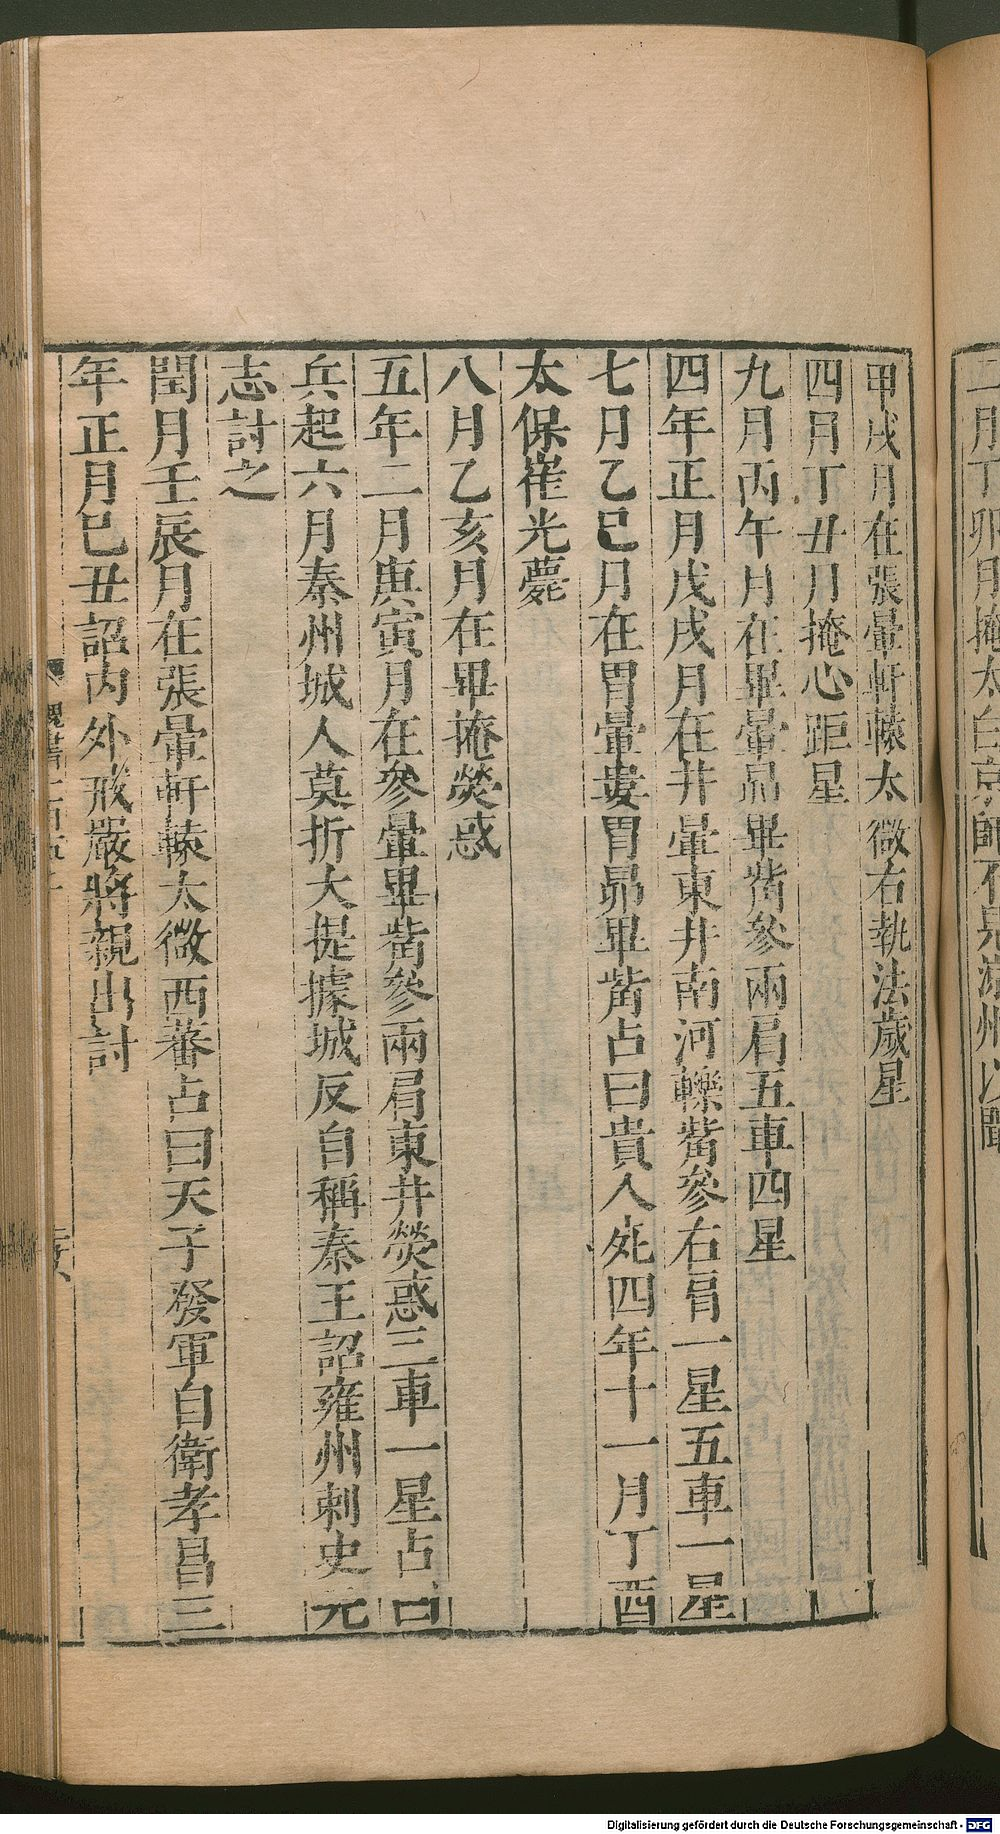 二月丁卯月掩太白京師不見涼州以聞
甲戌月在張暈軒轅太微右執法歲星
四月丁丑月掩心距星
九月丙午月在畢暈昴畢觜參兩肩五車四星
四年正月戊戌月在井暈東井南河轢觜參右肩一星五車一星
七月乙巳月在胃暈婁胃昴畢觜占曰貴人死四年十一月丁酉
太保崔光薨
八月乙亥月在畢掩熒惑
五年二月庚寅月在參暈畢觜參兩肩東井熒惑三車一星占曰
兵起六月秦州城人莫折大提據城反自稱秦王詔雍州刺史元
志討之
閏月壬辰月在張暈軒轅太微西蕃占曰天子發軍自衛孝昌三
年正月己丑詔內外戒嚴將親出討
魏書一百五
Digitalisierung gefördert durch die Deutsche Forschungsgemeinschaft - DFG